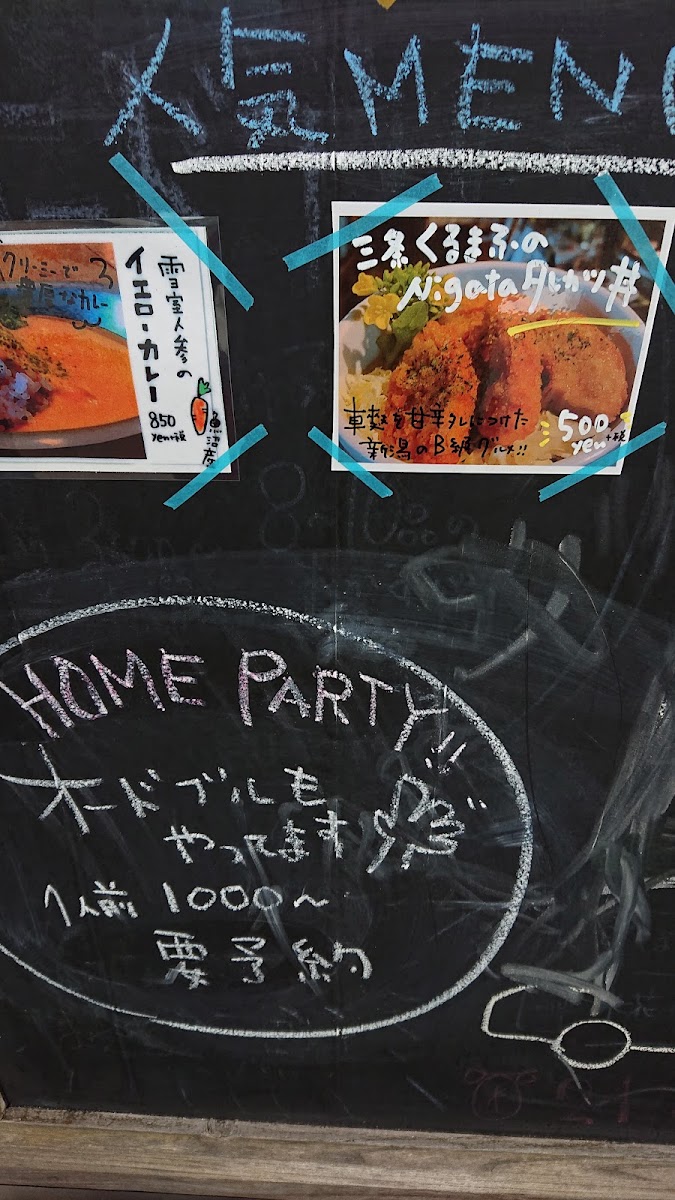 人気MENU
クリーミーで
濃厚なカレー
雪室人参の
イエローカレー
850
yen+税
魚沼産
三条くるまふの
Niigataタレカツ丼
車麩を甘辛タレにつけた
新潟のB級グルメ!!
500
yen+税
HOME PARTY
オードブルも
やってます
1人前 1000〜
要予約